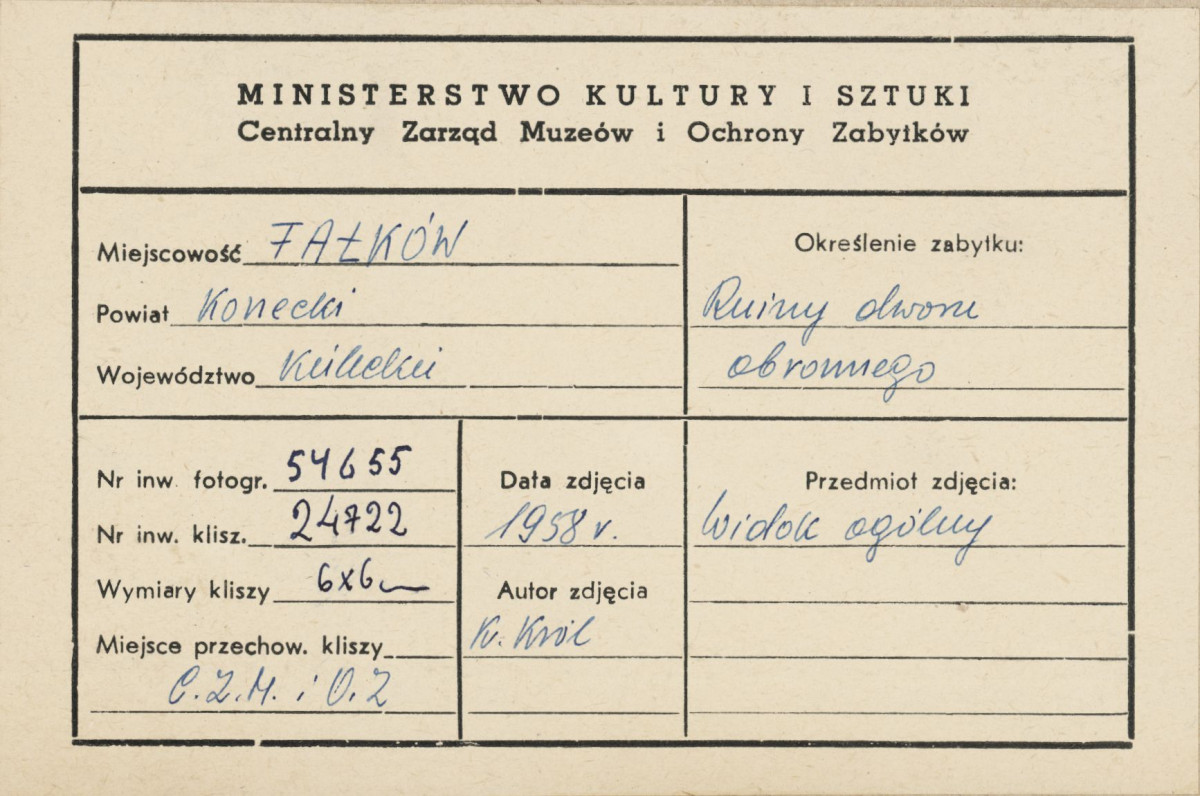 MINISTERSTWO KULTURY I SZTUKI
Centralny Zarząd Muzeów i Ochrony Zabytków
Miejscowość FAŁKÓW
Powiat Konecki
Województwo Kielecki
Określenie zabytku:
Ruiny dworu
obronnego
Nr inw. fotogr. 54655
Nr inw. klisz. 24722
Wymiary kliszy 6x6
Miejsce przechow. kliszy
C.Z.M. i O.Z
Data zdjęcia
1958 r.
Autor zdjęcia
K. Król
Przedmiot zdjęcia:
Widok ogólny